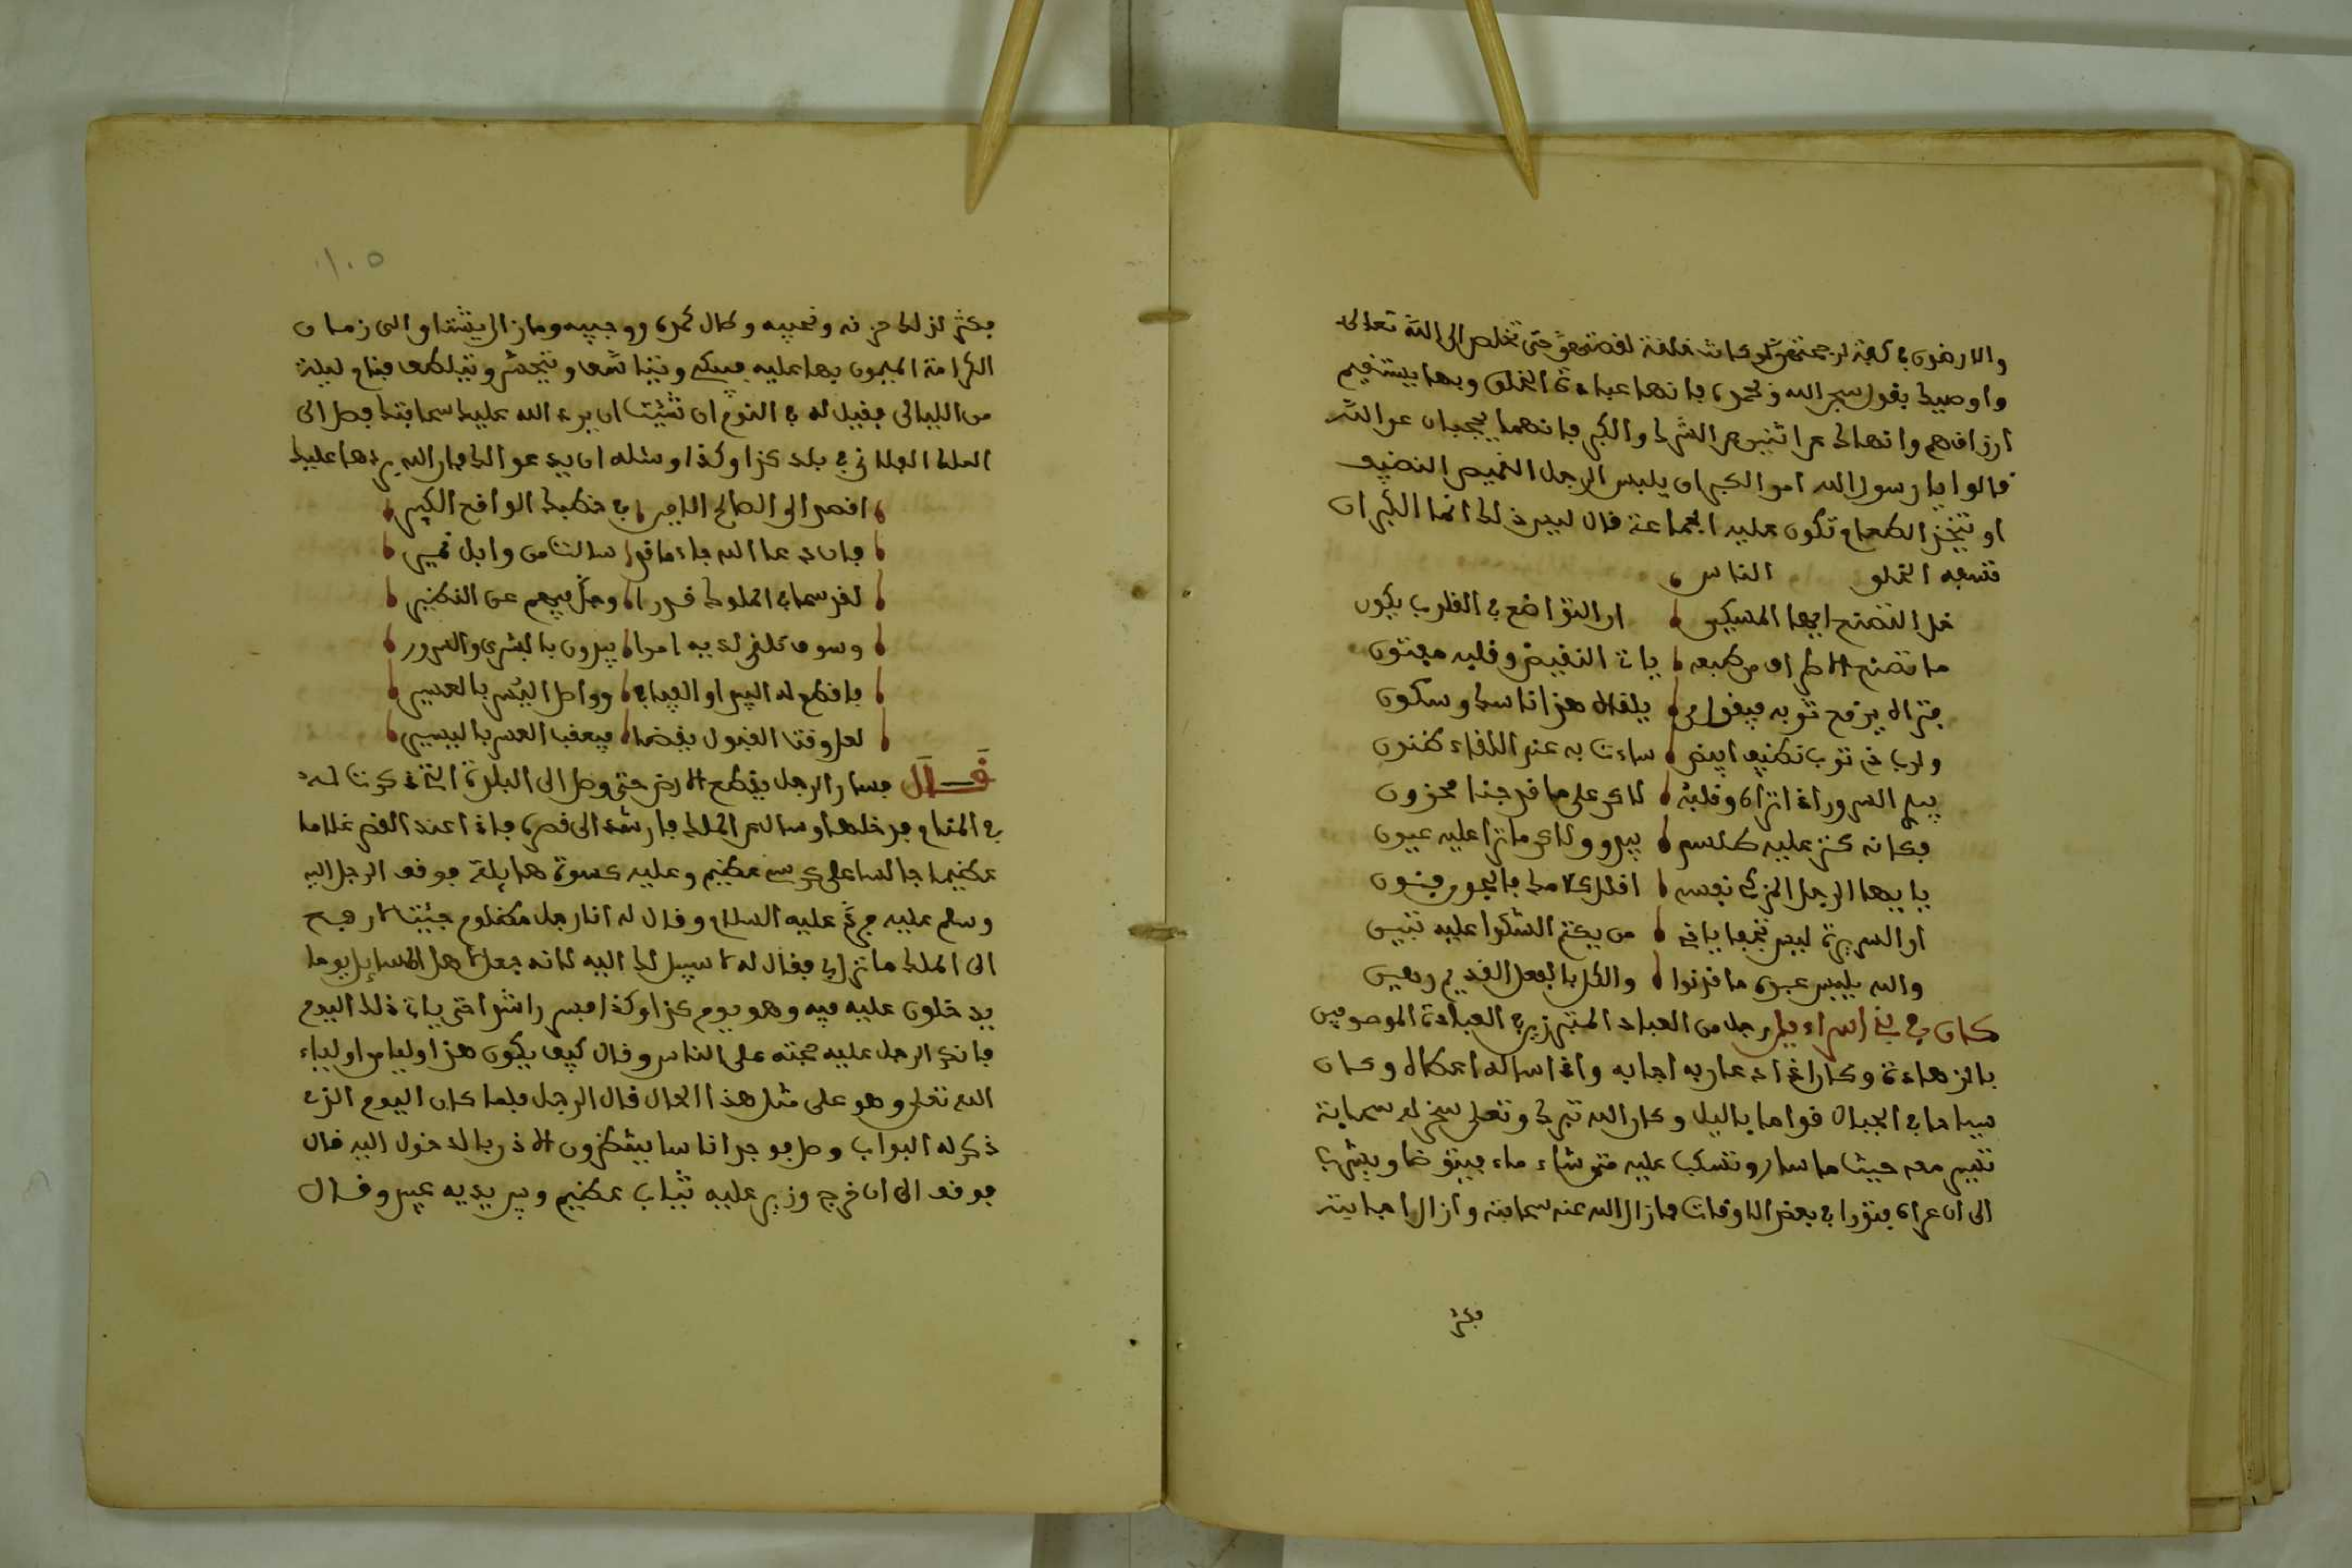 والارضون في كفة لرجحتهن ولو كانت حلقة لقصمتهن حتى تخلص الى الله تعالى
واوصيك بقول سبحن الله وبحمده فانها عبادة الخلق وبها يستقيم
ارزاقهم وانهاك عن اثنين عن الشرك والكبر فانهما يحجبان عن الله
قالوا يا رسول الله امن الكبر ان يلبس الرجل القميص النضيف
او يتخذ الطعام تكون عليه الجماعة قال ليس ذلك انما الكبر ان
تسفه الخلق الناس
خل التصنع ايها المسكين ان التواضع في القلوب يكون
ما تصنع الاطراف من طبعه ياتي النقيض وقلبه مفتون
فتراه يرفع ثوبه فيقول من يلقاه هذا ناسك وسكون
ولرب ذي ثوب نظيف ابيض ساءت به عند اللقاء ظنون
يبدي السرور اذا تراه وقلبه لاكن على ما قد جنا محزون
فكانه كنز عليه طلسم يبدو ولاكن ما تراه عليه عيون
يا ايها الرجل المزكي نفسه اقلل كلامك فالجور فنون
ان السريرة ليس تخفى يا فتى من يكتم الشكوا عليه تبين
والله يلبس عبده ما قد نوا والكل بالفعل القديم رهين
كان في بني اسراءيل رجل من العباد المشهورين في العبادة الموصوفين
بالزهادة وكان اذا دعا ربه اجابه واذا ساله اعطاه وكان
سياحا في الجبال قواما باليل وكان الله تبرك وتعلى سخر له سحابة
تسير معه حيث ما سار وتسكب عليه متى شاء ماء فيتوضا ويشرب
الى ان عراه فتور في بعض الاوقات فازال الله عنه سحابته وازال اجابته
فكثر
١٠٥
فكثر لذلك حزنه ونحيبه وطال كمده ووجيبه وما زال يشتاق الى زمان
الكرامة الممنون بها عليه فيبكي ويتاسف ويتحسر ويتلهف فنام ليلة
من الليالي فقيل له في النوم ان شئت ان يرد الله عليك سحابتك فصل الى
الملك الفلاني في بلد كذا وكذا وسئله ان يدعو لك فان الله يردها عليك
اقصد الى الصالح الامير في خطبك الوافع الكبير
فان دعا الله جاء ما قد سالت من وابل غمير
لقد سما في الملوك قدرا وجل فيهم عن النظير
وسوف تلقى لديه امرا يبدون بالبشرى والسرور
فاقطع له البيد والفيافي وواصل اليسر بالعسير
لعل وقت القبول يقضى فيعقب العسر باليسير
قال فسار الرجل يقطع الارض حتى وصل الى البلدة التي ذكرت له
في المنام فدخلها وسال عن الملك فارشد الى قصره فاذا عند القصر غلاما
عظيما جالسا على كرسي عظيم وعليه كسوة هايلة فوقف الرجل اليه
وسلم عليه فرد عليه السلام وقال له انا رجل مظلوم جئت لارفع
الى الملك ما نزل بي فقال له لا سبيل لك اليه لانه جعل لاهل المسايل يوما
يدخلون عليه فيه وهو يوم كذا وكذا فسر راشدا حتى ياتي ذلك اليوم
فانكر الرجل عليه حجبته على الناس وقال كيف يكون هذا وليا من اولياء
الله تعلى وهو على مثل هذا الحال قال الرجل فلما كان اليوم الذي
ذكر له البواب وصل فوجد اناسا ينتظرون الاذن بالدخول اليه قال
فوقف الى ان خرج وزير عليه ثياب عظيم وبين يديه عبيد وقال